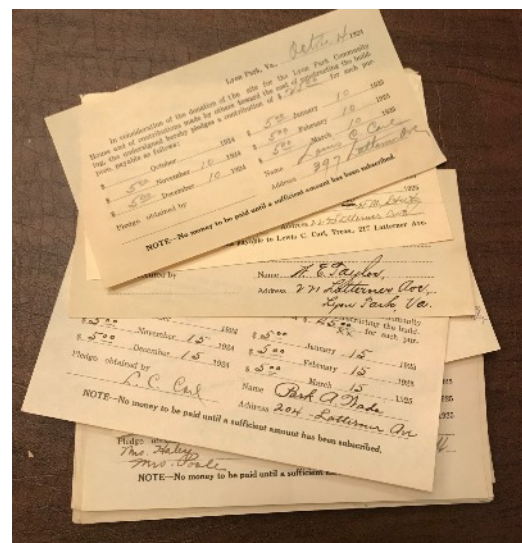 Lyon Park, Va., 1924
In consideration of the donation of the site for the Lyon Park Community
House and of contributions made by others toward the cost of constructing the build-
ing, the undersigned hereby pledges a contribution of $ for such pur-
pose, payable as follows:
$ October 1924 $ 5.00 January 10 1925
$ 5.00 November 10 1924 $ 5.00 February 10 1925
$ 5.00 December 10 1924 $ 5.00 March 10 1925
Pledge obtained by Name Louis C. Carl
Address
NOTE—No money to be paid until a sufficient amount has been subscribed.
1925
Address
payable to Lewis C. Carl, Treas, 217 Latterner Ave.
by Name W. E. Taylor,
Address 221 Latterner Ave,
Lyon Park, Va.
constructing the build-
for such pur-
$ 5.00 November 15 1924 $ 5.00 January 15 1925
$ 5.00 December 15 1924 $ 5.00 February 15 1925
$ 5.00 March 15 1925
Pledge obtained by Name Park A Wade
L. C. Carl Address 204 - Latterner Av
NOTE—No money to be paid until a sufficient amount has been subscribed.
1925
Pledge
Mrs. Haley
Mrs.
NOTE—No money to be paid until a sufficient